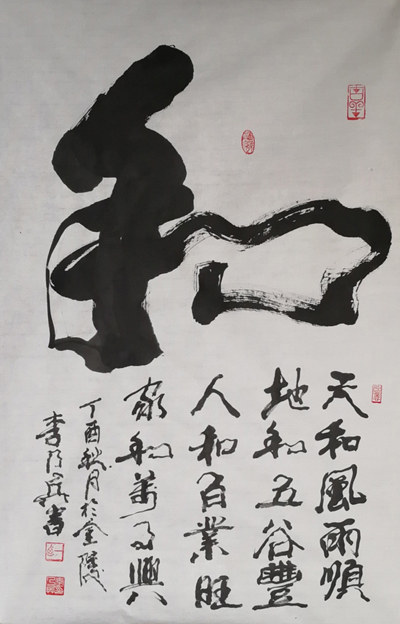 和
天和風雨順
地和五谷豐
人和百業旺
家和萬事興
丁酉秋月於金陵
李乃蔚書